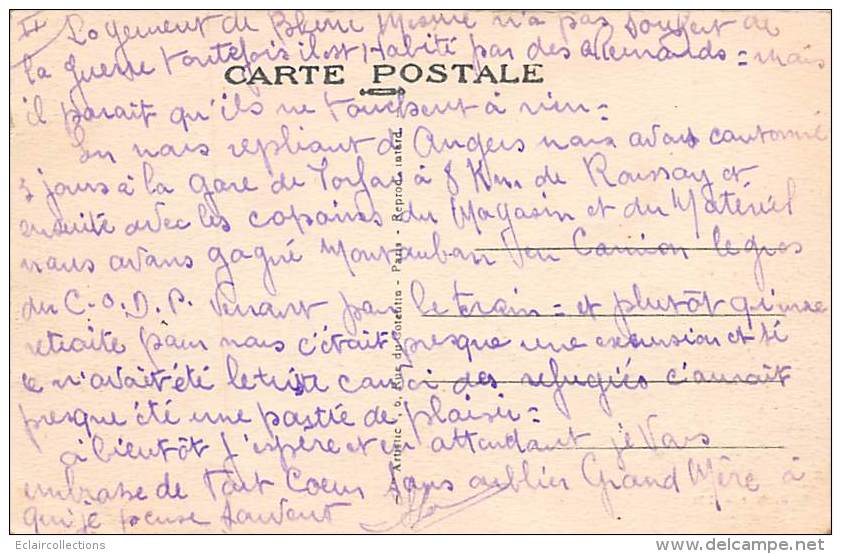 II Logement de Mesme n'a pas souffert de
la guerre toutefois il est habité par des allemands = mais
CARTE POSTALE
il parait qu'ils ne touchent à rien =
En nous repliant d'Angers nous avons cantonné
3 jours à la gare de Torfou à 8 Km de Roussay et
ensuite avec les copains du Magasin et du Matériel
nous avons gagné Montauban en Camion le gros
du C.O.D.P. venant par le train = et plutôt qu'une
retraite pour nous c'était presque une excursion et si
ce n'avait été le triste convoi des refugiés c'aurait
presque été une partie de plaisir =
à bientôt j'espère et en attendant je vous
embrasse de Tout Coeur sans oublier Grand Mère à
qui je pense souvent
Artistic, 6, Rue du Cotentin - Paris - Reprod. interd.
Eclaircollections
http://eclaircollections.delcampe.net